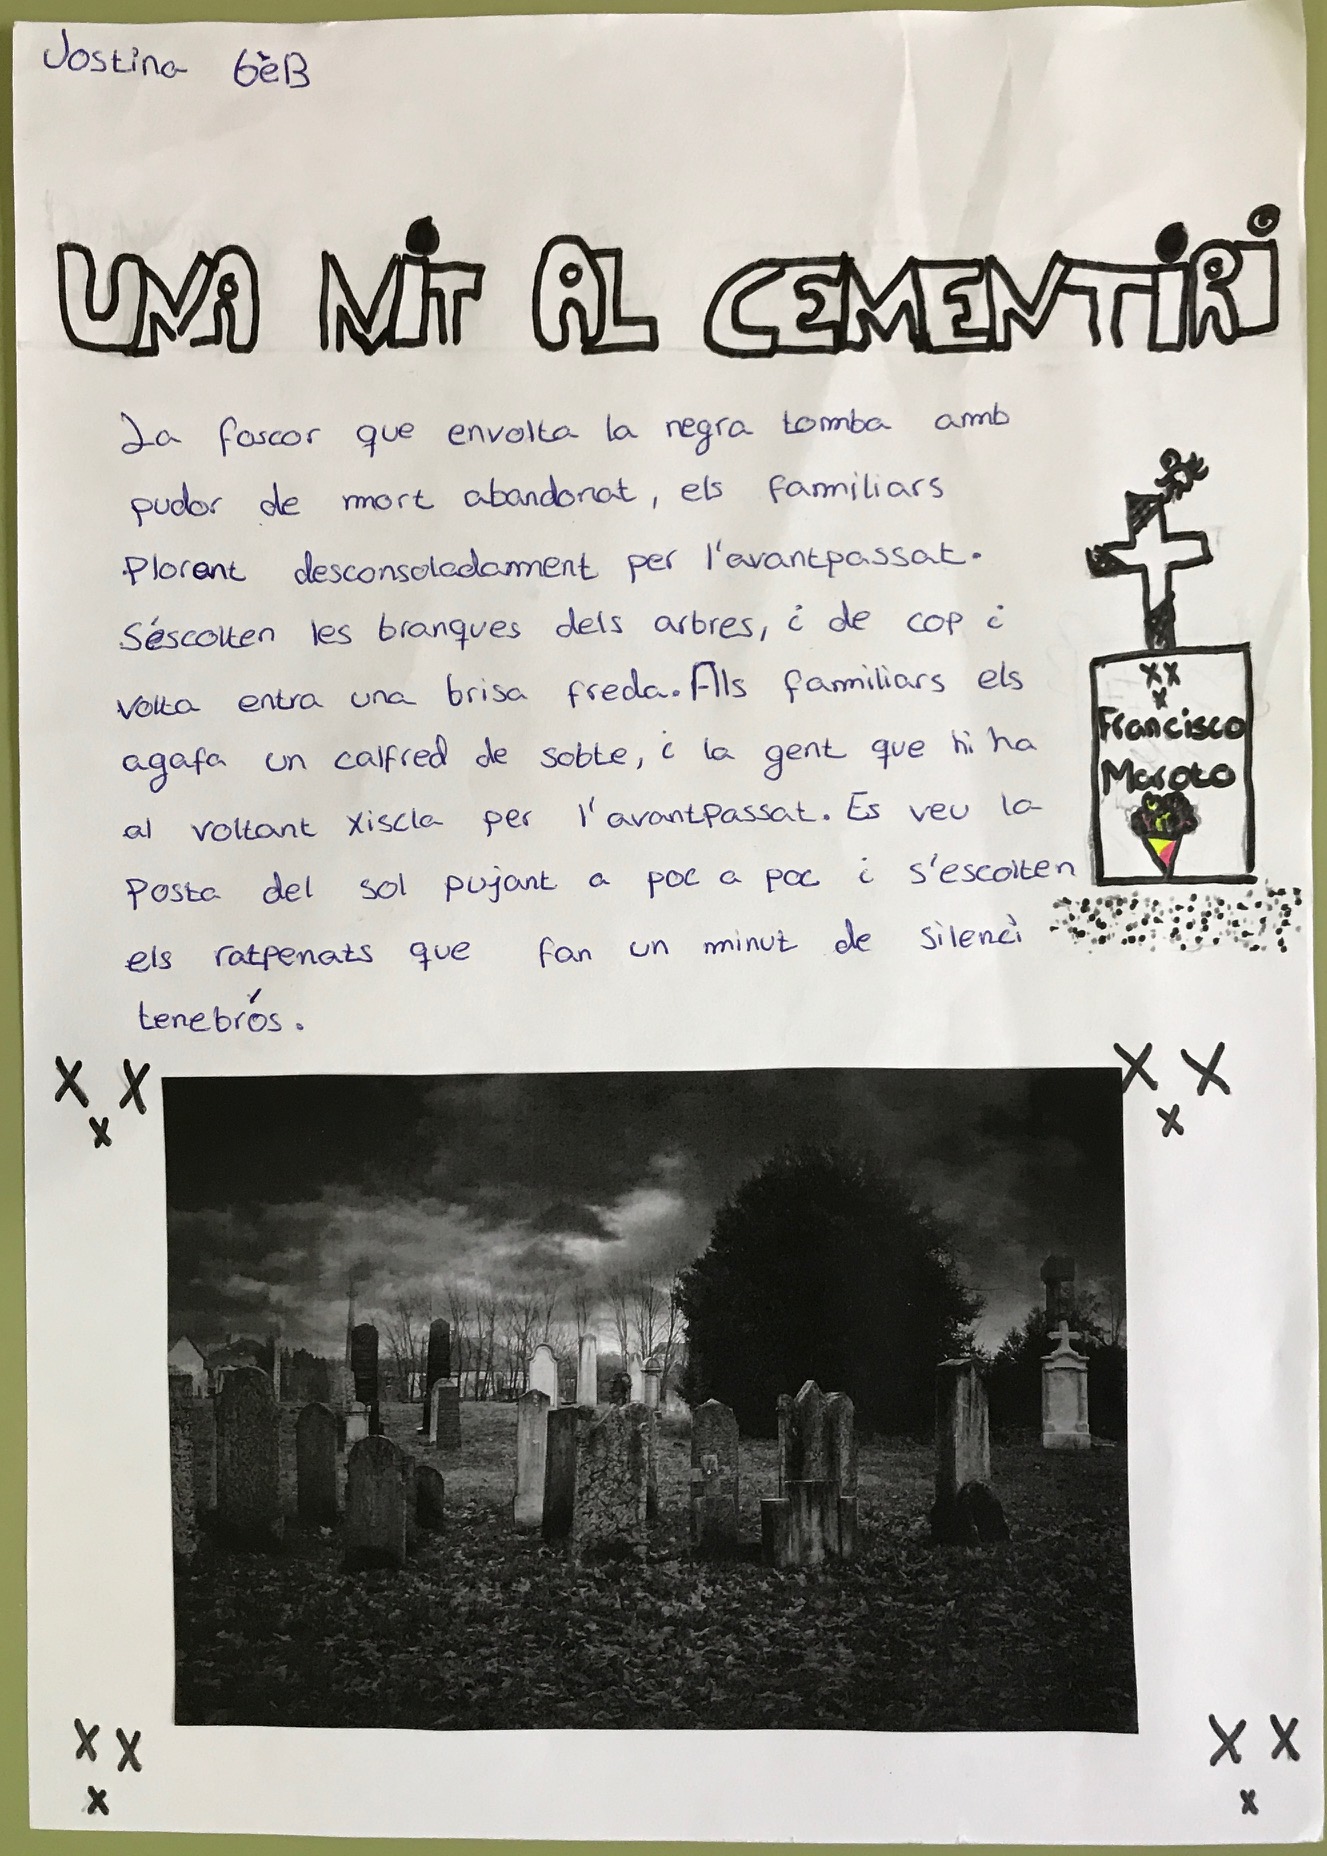 Jostina 6èB
UNA NiT AL CEMENTiRi
La foscor que envolta la negra tomba amb
pudor de mort abandonat, els familiars
Plorant desconsoladament per l'avantpassat.
S'escolten les branques dels arbres, i de cop i
volta entra una brisa freda. Als familiars els
agafa un calfred de sobte, i la gent que hi ha
al voltant xiscla per l'avantpassat. Es veu la
Posta del sol pujant a poc a poc i s'escolten
els ratpenats que fan un minut de silenci
tenebrós.
XX
X
Francisco
Maroto
X X X X
X X
X X X X
X X